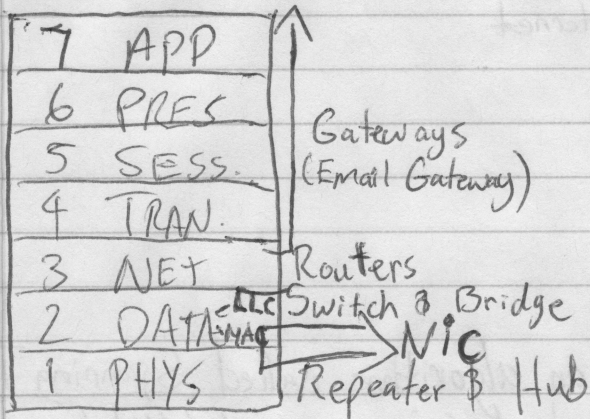 7 APP
6 PRES
5 SESS.
4 TRAN.
3 NET
2 DATA
LLC
MAC
1 PHYS
Gateways
(Email Gateway)
Routers
Switch & Bridge
NiC
Repeater & Hub